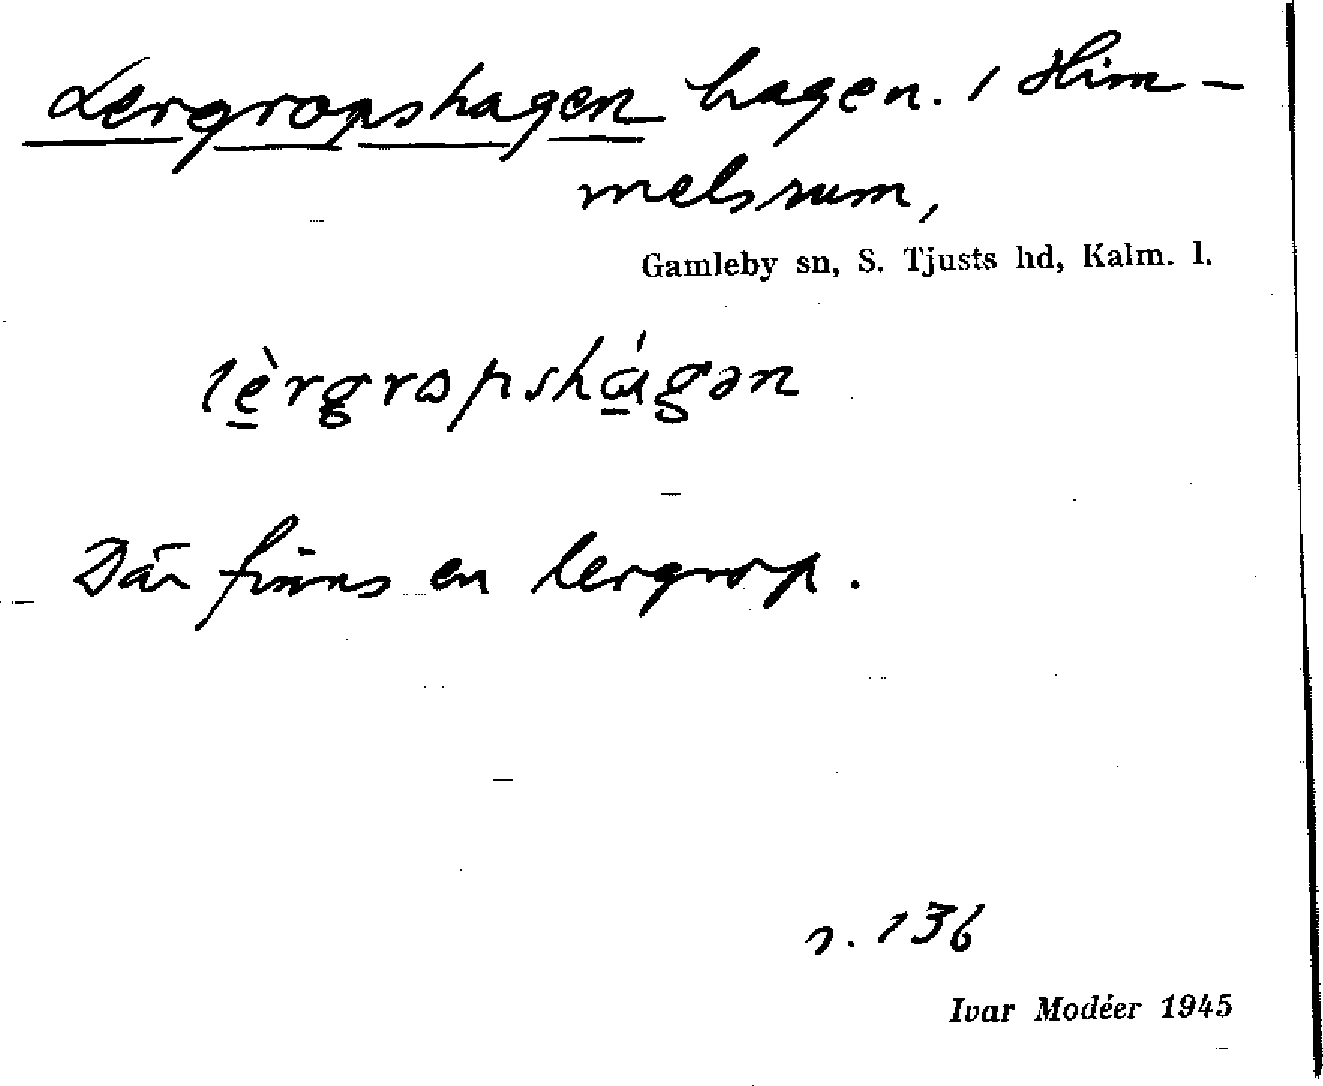 Lergropshagen hagen. 1 Him-
melsrum,
Gamleby sn, S. Tjusts hd, Kalm. l.
lè̠rgropshá̠gən
Där finns en lergrop.
s. 136
Ivar Modéer 1945